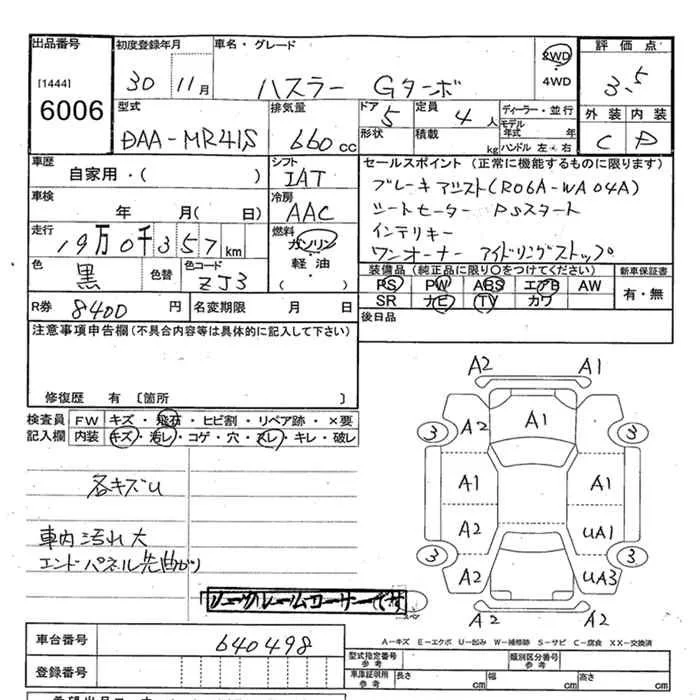 出品番号 初度登録年月 車名・グレード 2WD 4WD 評価点
[1444] 6006 30 11月 ハスラー Gターボ 3.5
型式 排気量 ドア 5 定員 4人 ディーラー・並行 外装 内装
DAA-MR41S 660cc 形状 積載 kg モデル年式 年 ハンドル 左・右 C D
車歴 シフト セールスポイント(正常に機能するものに限ります)
自家用・( ) IAT ブレーキアシスト(R06A-WA04A)
車検 冷房 シートヒーター PSスタート
年 月( 日) AAC インテリキー
走行 19万0千357km 燃料 ガソリン 軽油 ( ) ワンオーナー アイドリングストップ
色 黒 色替 色コード ZJ3 装備品(純正品に限り○をつけてください) 新車保証書
PS PW ABS エアB AW 有・無
SR ナビ TV カワ
R券 8400円 名変期限 月 日 後日品
注意事項申告欄(不具合内容等は具体的に記入して下さい)
修復歴 有 [箇所 ]
検査員記入欄 FW キズ・飛石・ヒビ割・リペア跡・×要
内装 キズ・汚レ・コゲ・穴・スレ・キレ・破レ
各キズU
車内汚れ大
エンドパネル先曲がり
A2 A1
3 A2 A1 3
A1 A1
A2 UA1
3 A2 UA3 3
A2 A2
スペア
A-キズ E-エクボ U-凹み W-補修跡 S-サビ C-腐食 XX-交換済
車台番号 640498
型式指定番号 参考 類別区分番号 参考
登録番号 車庫証明用 参考 長さ cm 幅 cm 高さ cm